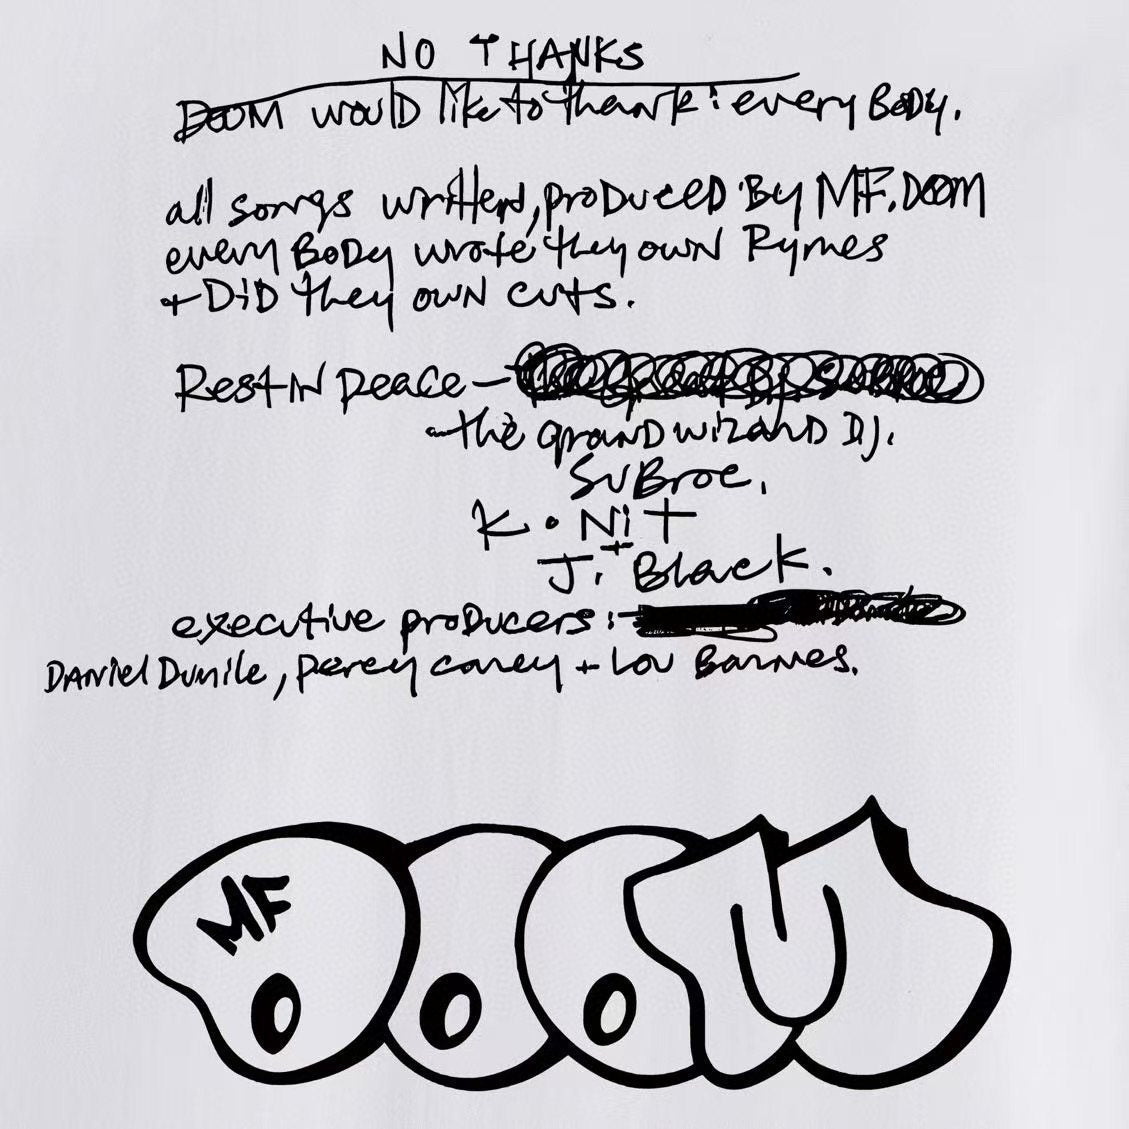 NO THANKS
DOOM would like to thank: every Body.
all songs written, produced By MF. DOOM
every Body wrote they own Rymes
+ DiD they own cuts.
Rest iN peace -
- the grand wizard DJ.
SuBroc.
K. NiT
+
J. Black.
executive producers:
Daniel Dumile, percy carey + Lou Barnes.
MF
DOOM